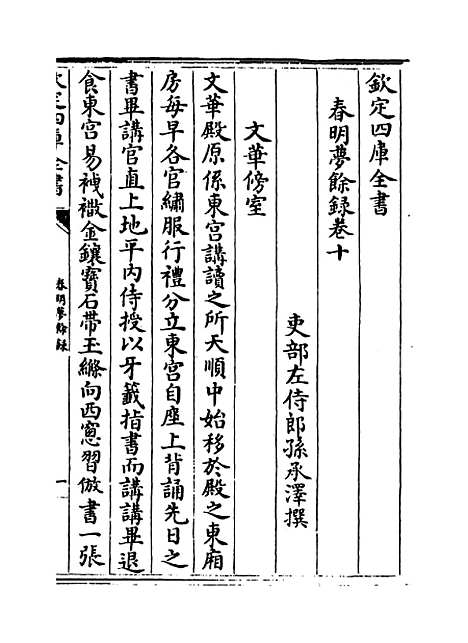 欽定四庫全書
春明夢餘錄卷十
吏部左侍郎孫承澤撰
文華傍室
文華殿原係東宮講讀之所天順中始移於殿之東廂
房每早各官繡服行禮分立東宮自座上背誦先日之
書畢講官直上地平內侍授以牙籤指書而講講畢退
食東宮易襪𧞤金鑲寶石帶玉縧向西窻習倣書一張
欽定四庫全書
春明夢餘錄
一